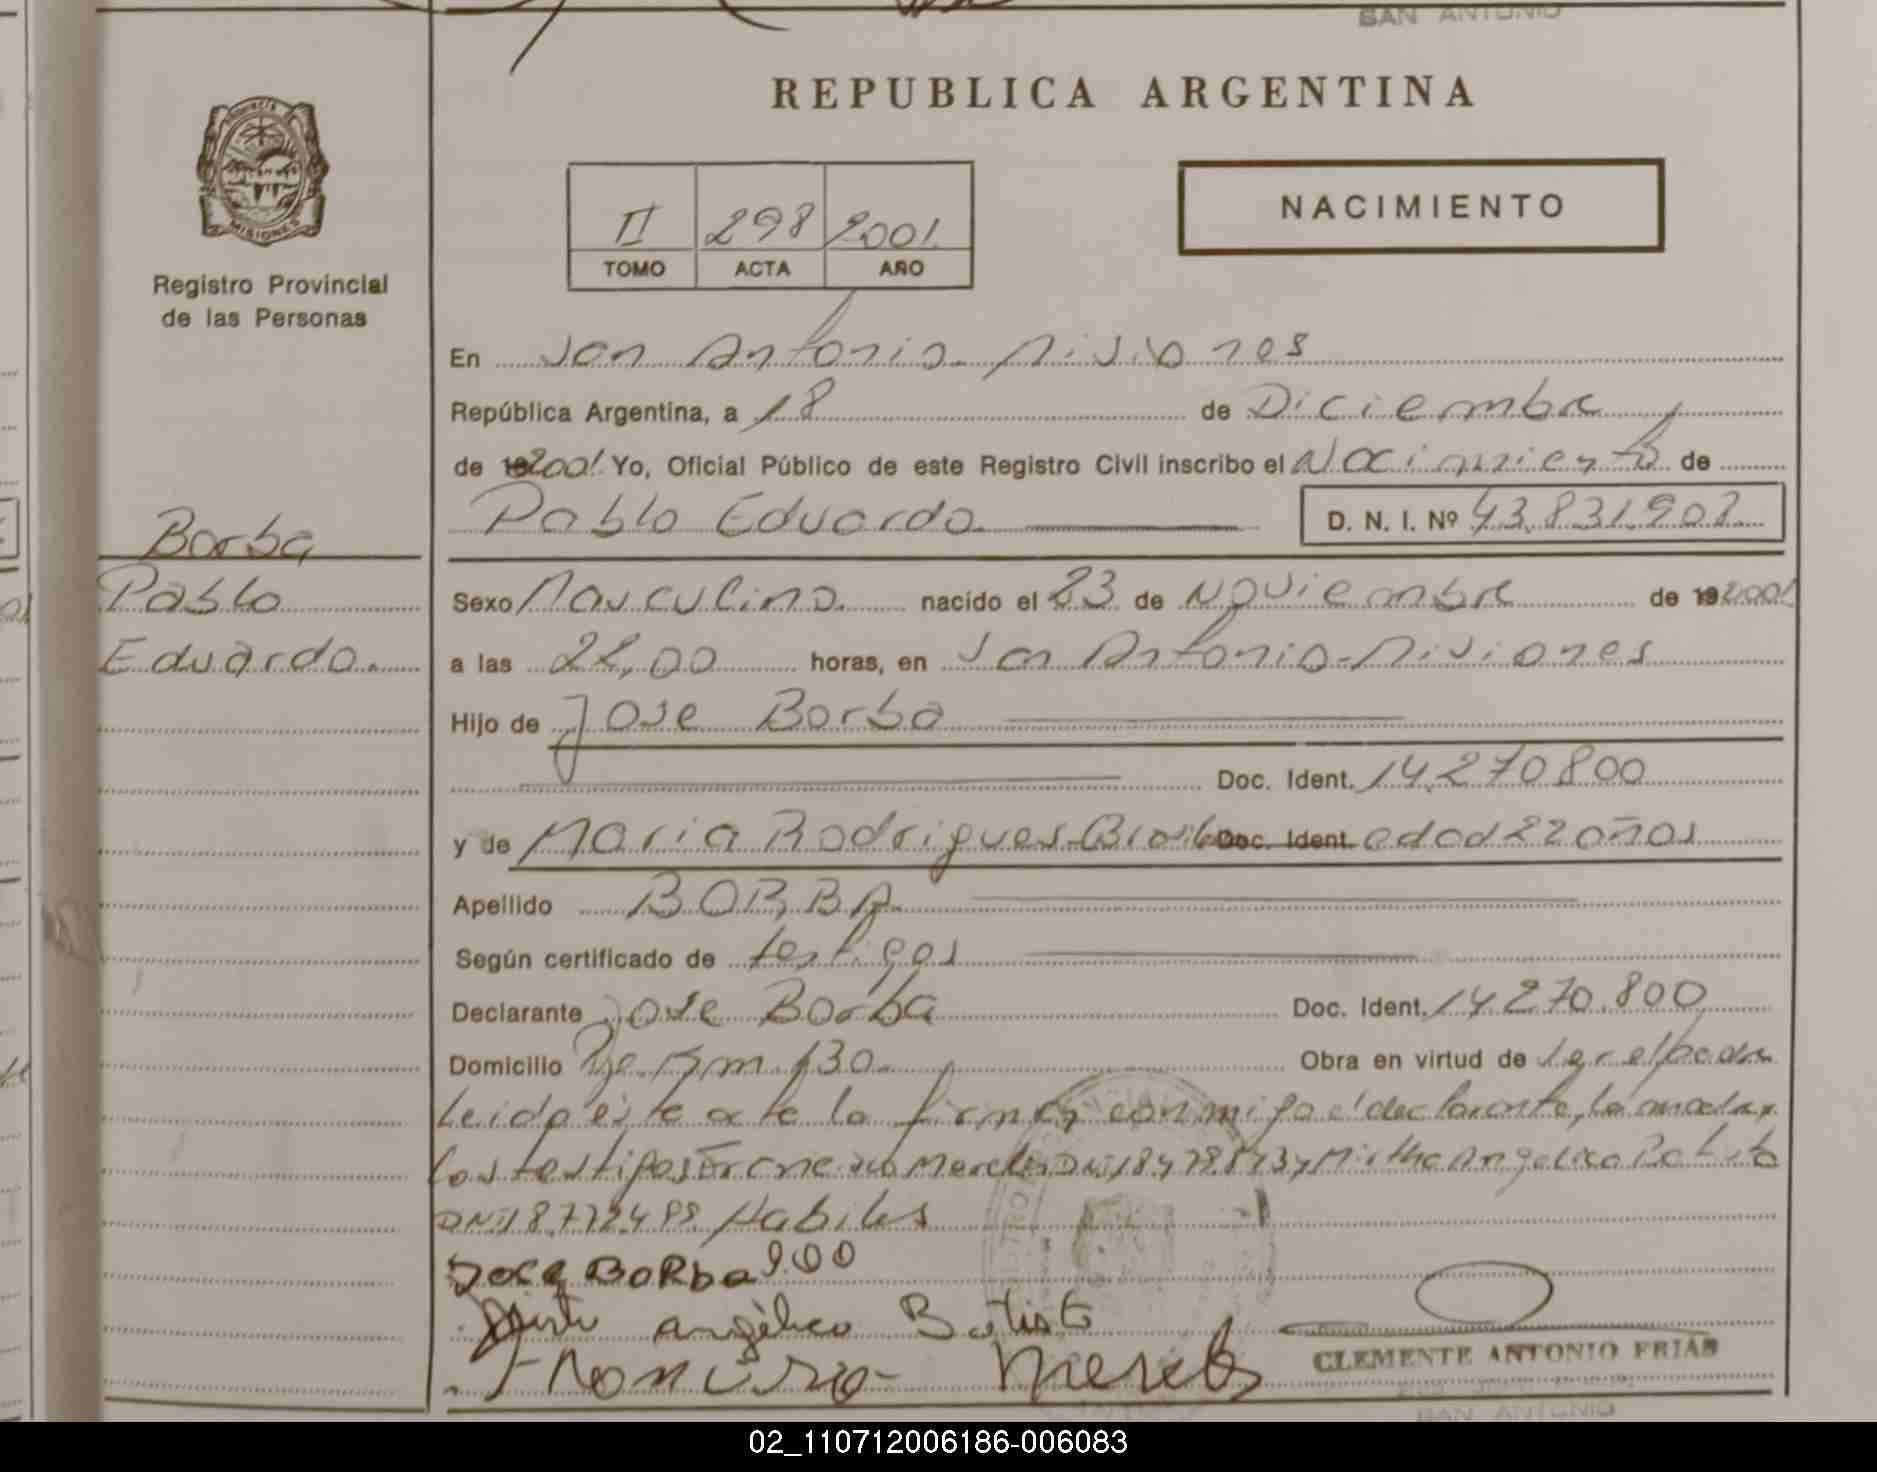 SAN ANTONIO
REPUBLICA ARGENTINA
PROVINCIA
MISIONES
Registro Provincial
de las Personas
II 298 2001
TOMO ACTA AÑO
NACIMIENTO
En San Antonio - Misiones
República Argentina, a 18 de Diciembre
de 19 2001 Yo, Oficial Público de este Registro Civil inscribo el Nacimiento de
Pablo Eduardo. D. N. I. Nº 43.831.902
Borba
Pablo
Eduardo.
Sexo Masculino nacido el 23 de Noviembre de 19 2001
a las 22,00 horas, en San Antonio - Misiones
Hijo de Jose Borba
Doc. Ident. 14.270.800
y de Maria Rodrigues - Doc. Ident. edad 22 años
Apellido BORBA
Según certificado de testigos
Declarante Jose Borba Doc. Ident. 14.270.800
Domicilio Km. 130. Obra en virtud de ser el padre
Leida este acta la firman conmigo el declarante, la madre y
los testigos DNI y Mirtha Angelica Batista
DNI Habiles
Jose Borba 900
angélica Batista
CLEMENTE ANTONIO FRIAS
SAN ANTONIO
02_110712006186-006083